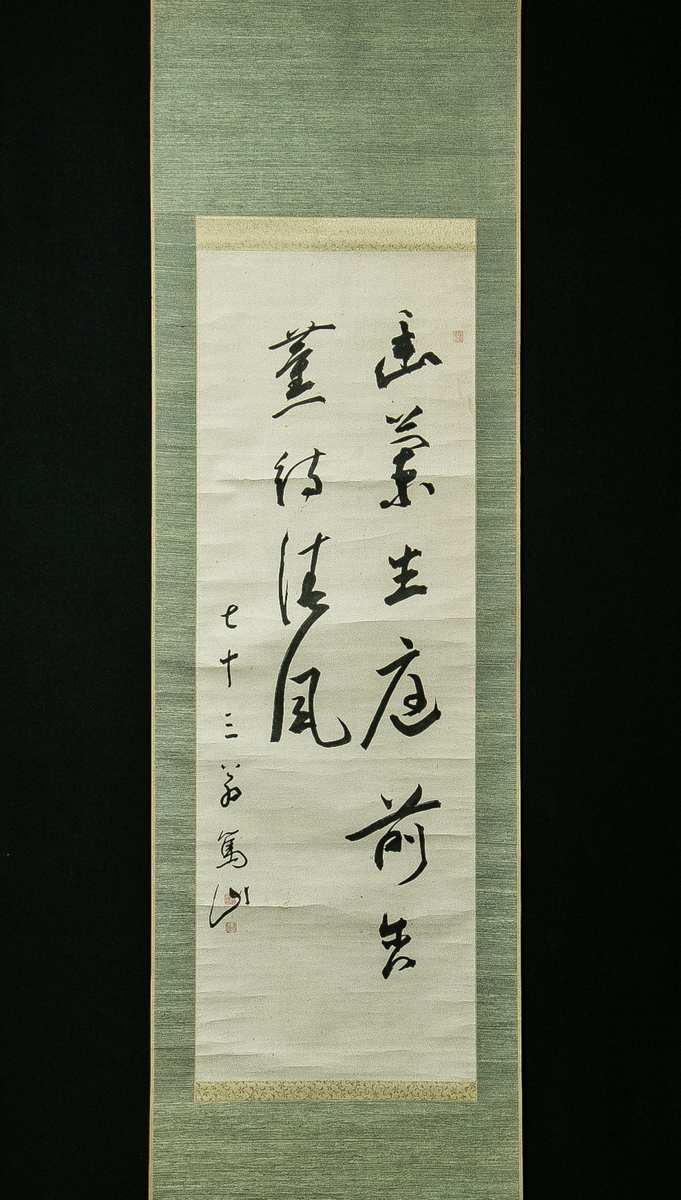 幽蘭生庭前含
薫待清風
七十三翁篤山